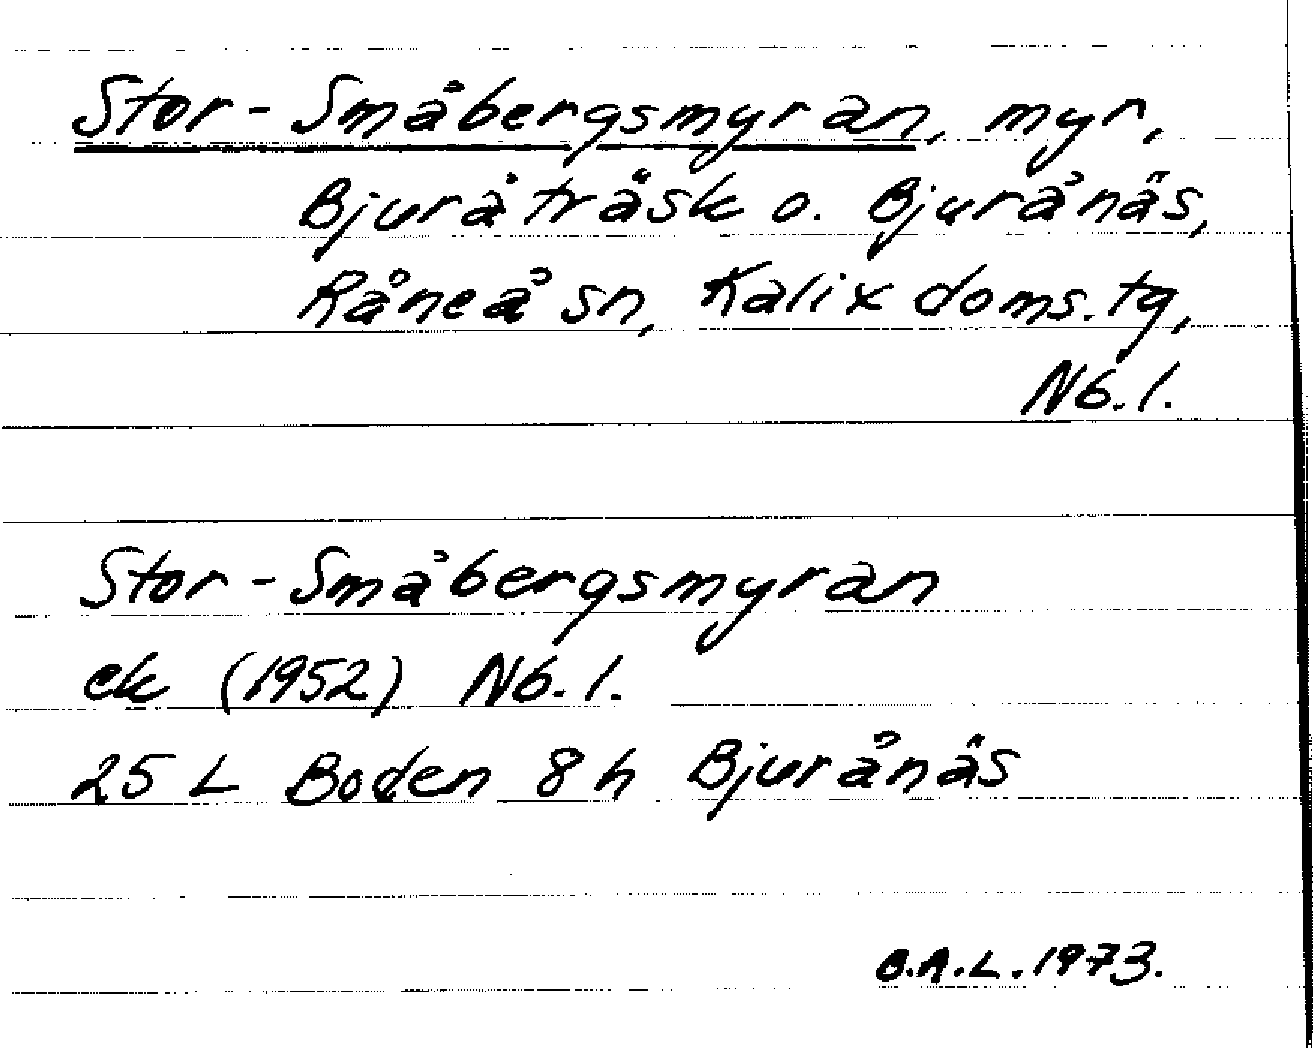 Stor-Småbergsmyran, myr,
Bjuråträsk o. Bjurånäs,
Råneå sn, Kalix doms.tg,
Nb.l.
Stor-Småbergsmyran
ek (1952) Nb.l.
25 L Boden 8 h Bjurånäs
B.A.L. 1973.